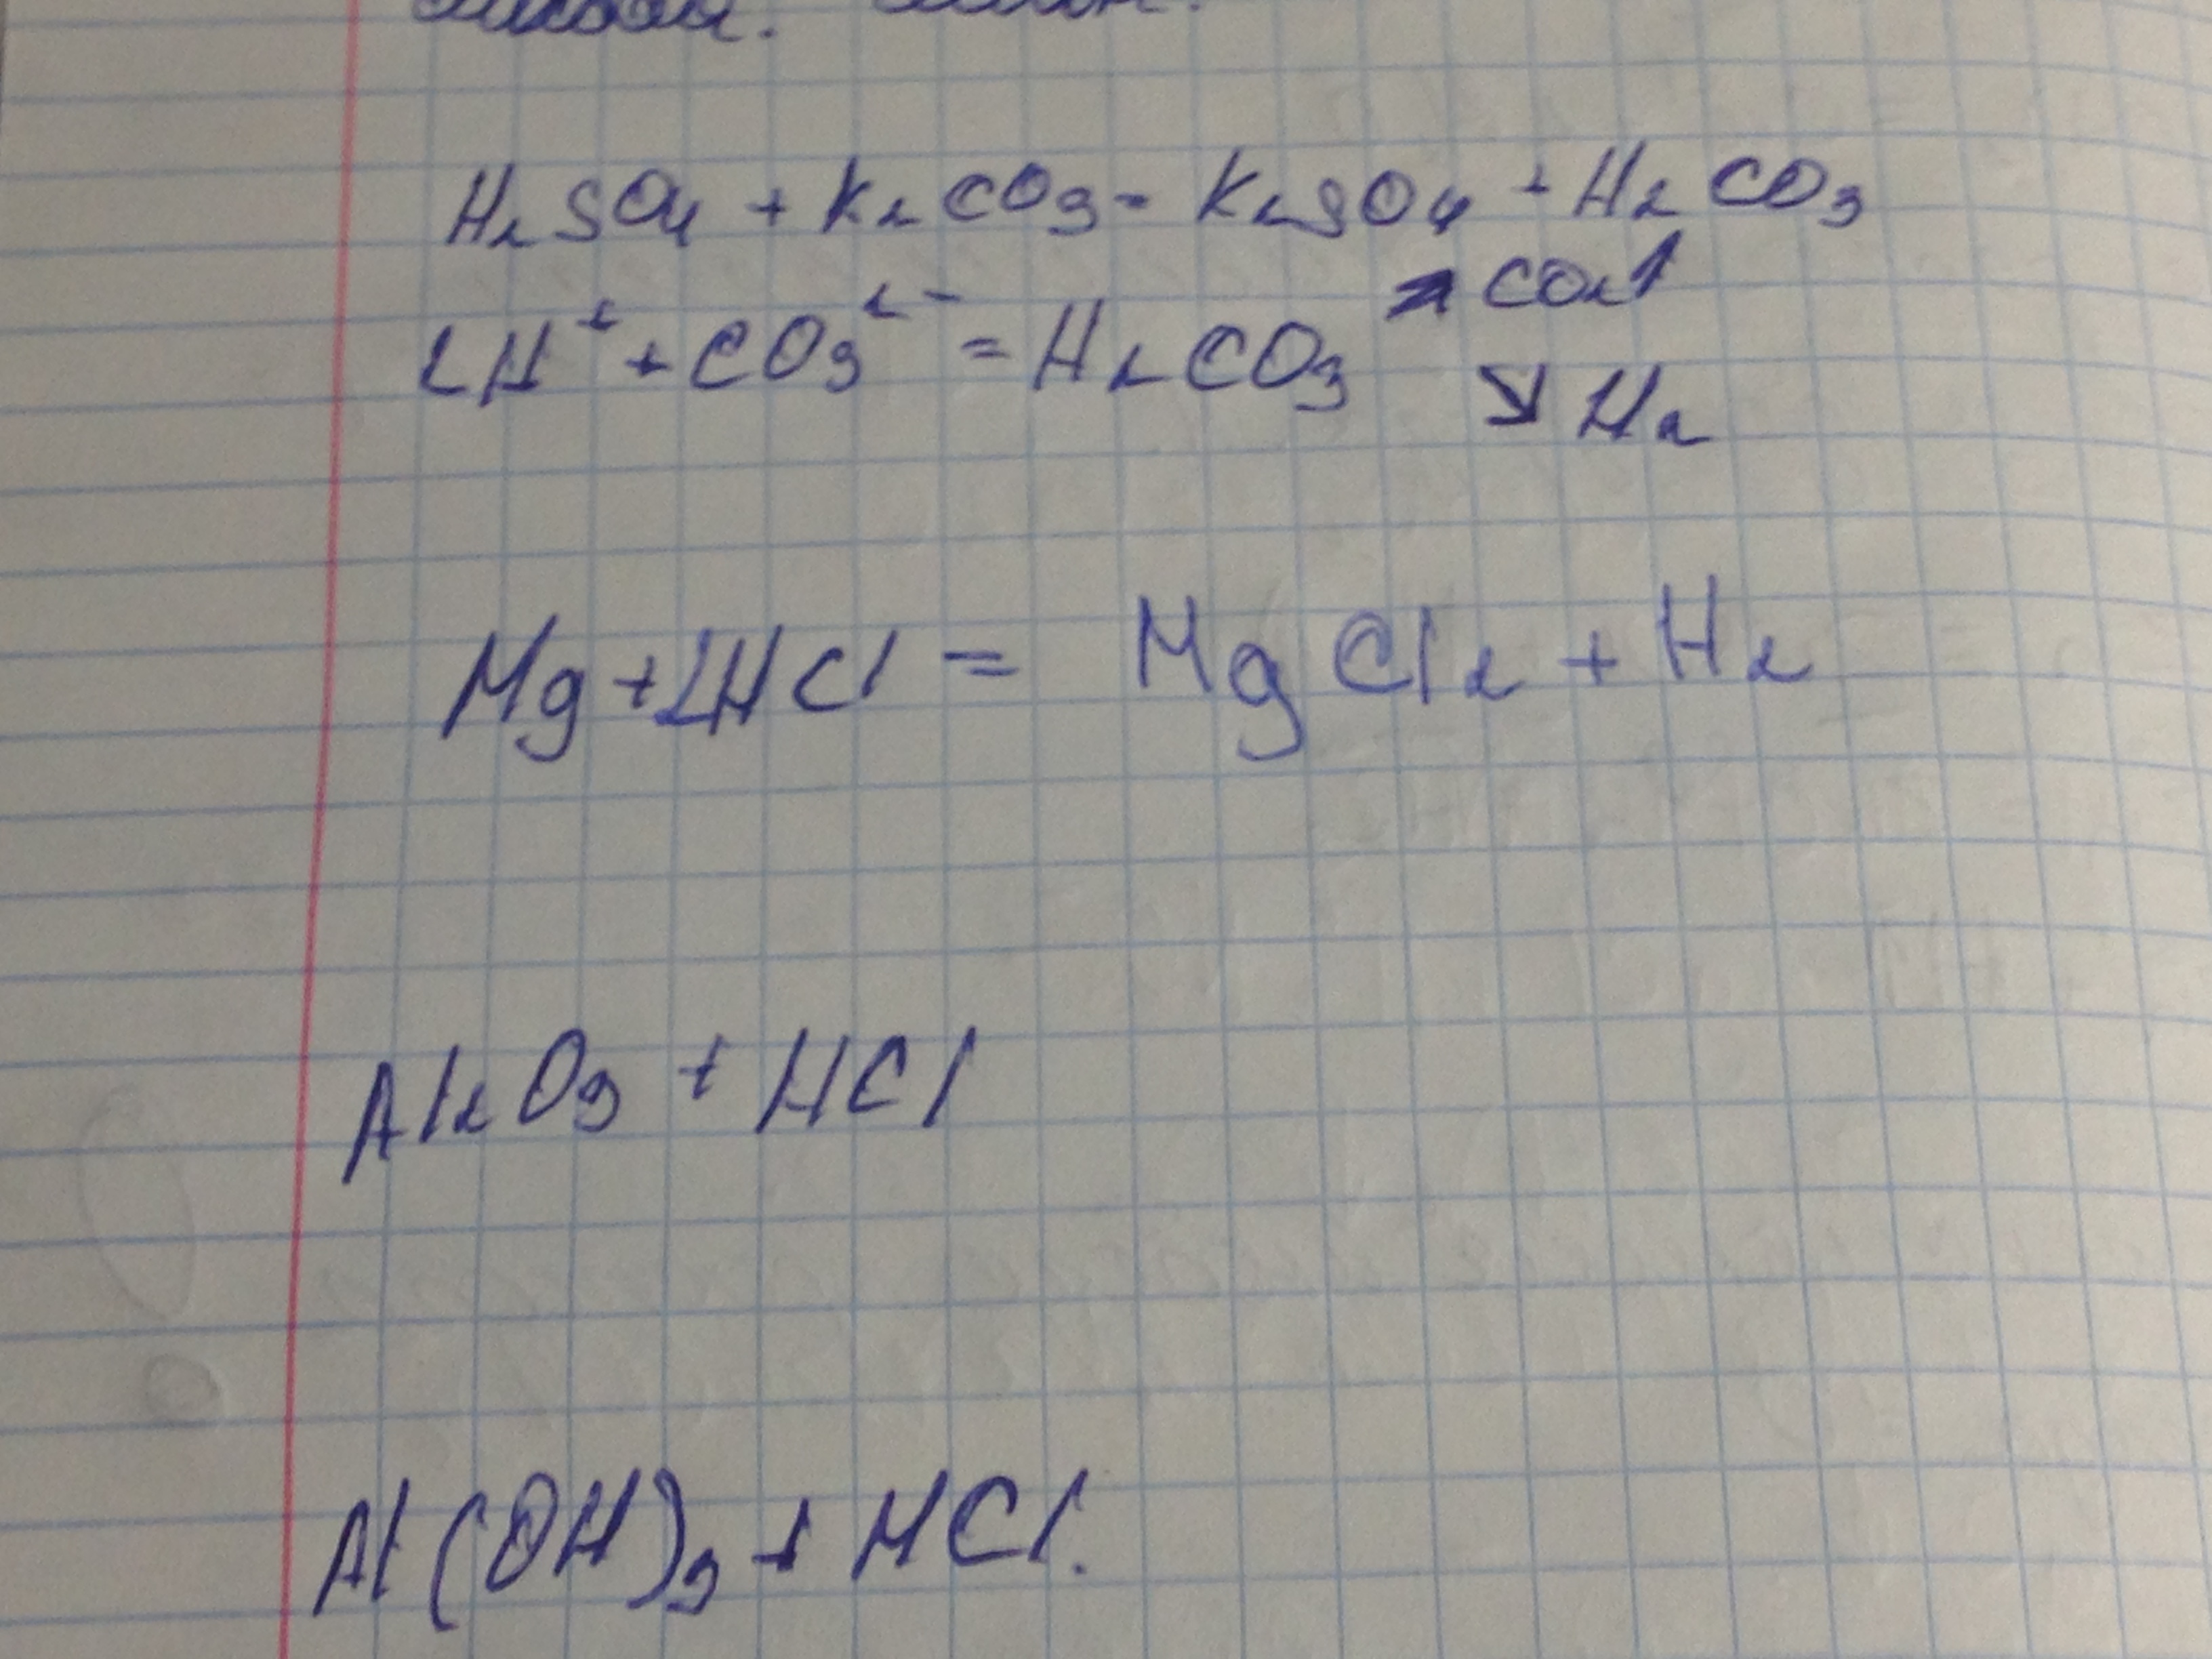 H₂SO₄ + K₂CO₃ = K₂SO₄ + H₂CO₃
↗ CO₂↑
2H⁺ + CO₃²⁻ = H₂CO₃
↘ H₂
Mg + 2HCl = MgCl₂ + H₂
Al₂O₃ + HCl
Al(OH)₃ + HCl.